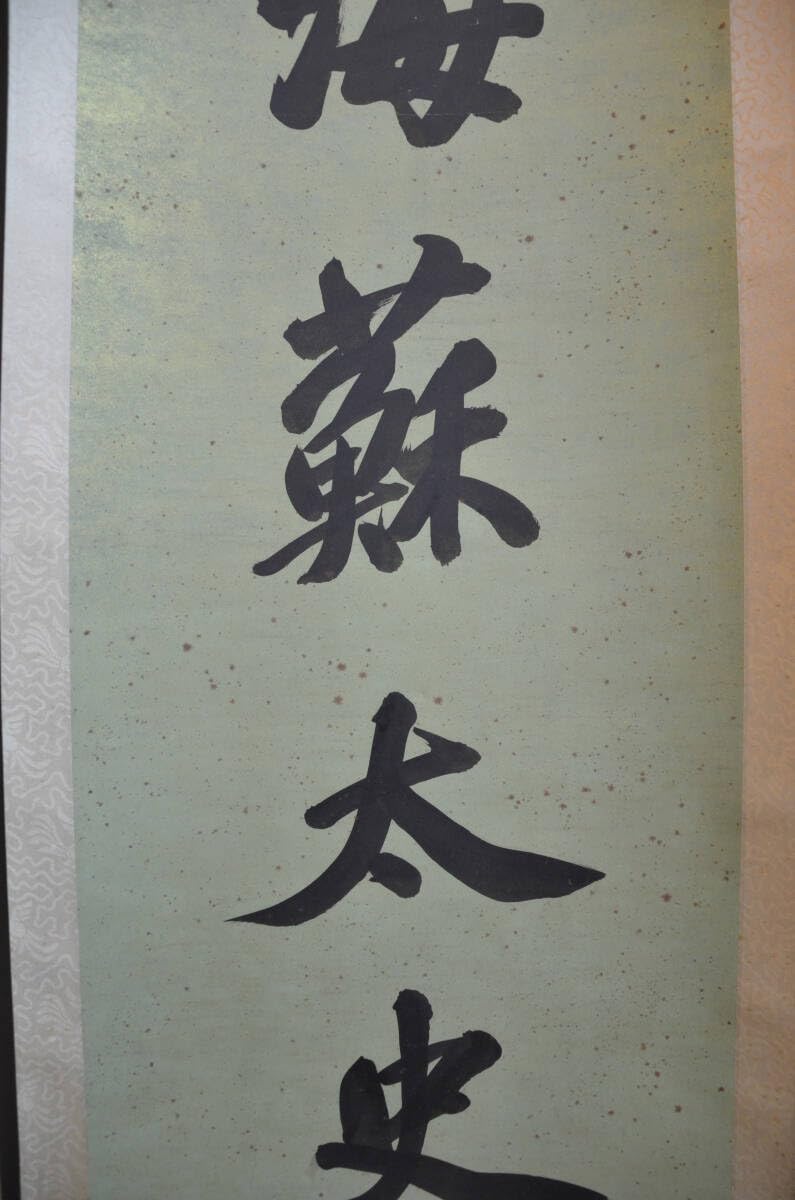 海蘇太史